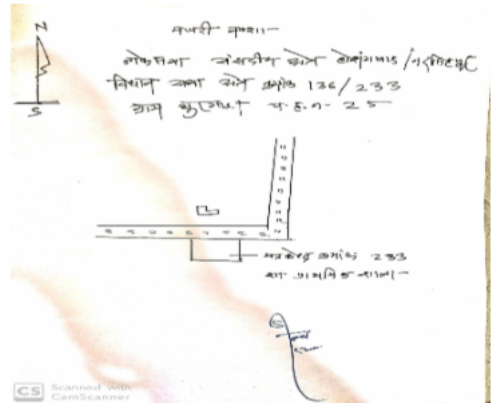 N
S
नजरी नक्शा:-
लोकसभा संसदीय क्षेत्र होशंगाबाद /
विधान सभा क्षेत्र क्रमांक 136/233
ग्राम प.ह.न- 25
मतकेन्द्र क्रमांक 233
शा. प्राथमिक शाला-
CS Scanned with
CamScanner